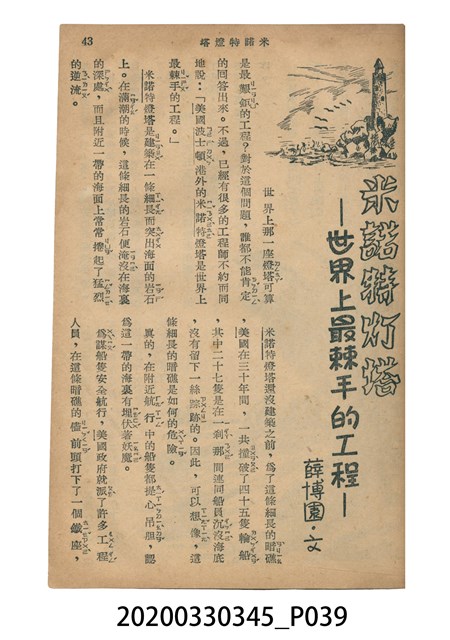 43
米諾特燈塔
米諾特灯塔
—世界上最棘手的工程—
薛博園·文
世界上那一座燈塔可算
是最艱鉅的工程？對於這個問題，誰都不能肯定
的回答出來。不過，已經有很多的工程師不約而同
地說：「美國波士頓港外的米諾特燈塔是世界上
最棘手的工程。」
米諾特燈塔是建築在一條細長而突出海面的岩石
上。在滿潮的時候，這條細長的岩石便淹沒在海裏
的深處，而且附近一帶的海面上常常捲起了猛烈
的逆流。
米諾特燈塔還沒建築之前，爲了這條細長的暗礁
，美國在三十年間，一共撞破了四十五隻輪船
，其中二十七隻是在一剎那間連同船員沉沒海底
，沒有留下一絲踪跡的。因此，可以想像，這
條細長的暗礁是如何的危險。
眞的，在附近航行中的船隻都提心吊胆，認
爲這一帶的海裏有埋伏著妖魔。
爲謀船隻安全航行，美國政府就派了許多工程
人員，在這條暗礁的儘前頭打下了一個鐵座，
20200330345_P039